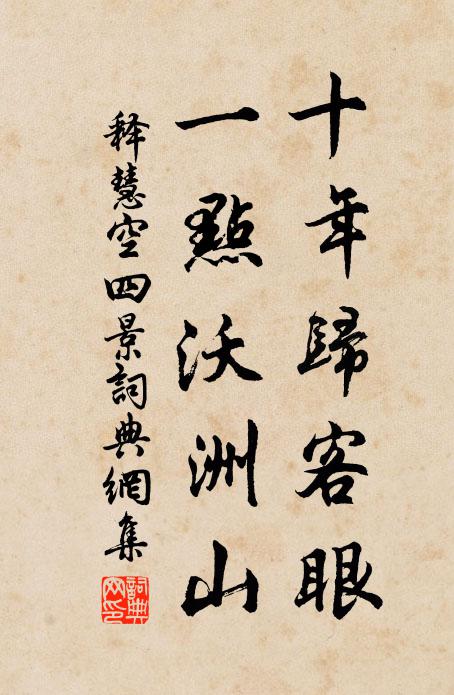 十年歸客眼
一點沃洲山
释慧空四景詞典網集
詞典网印